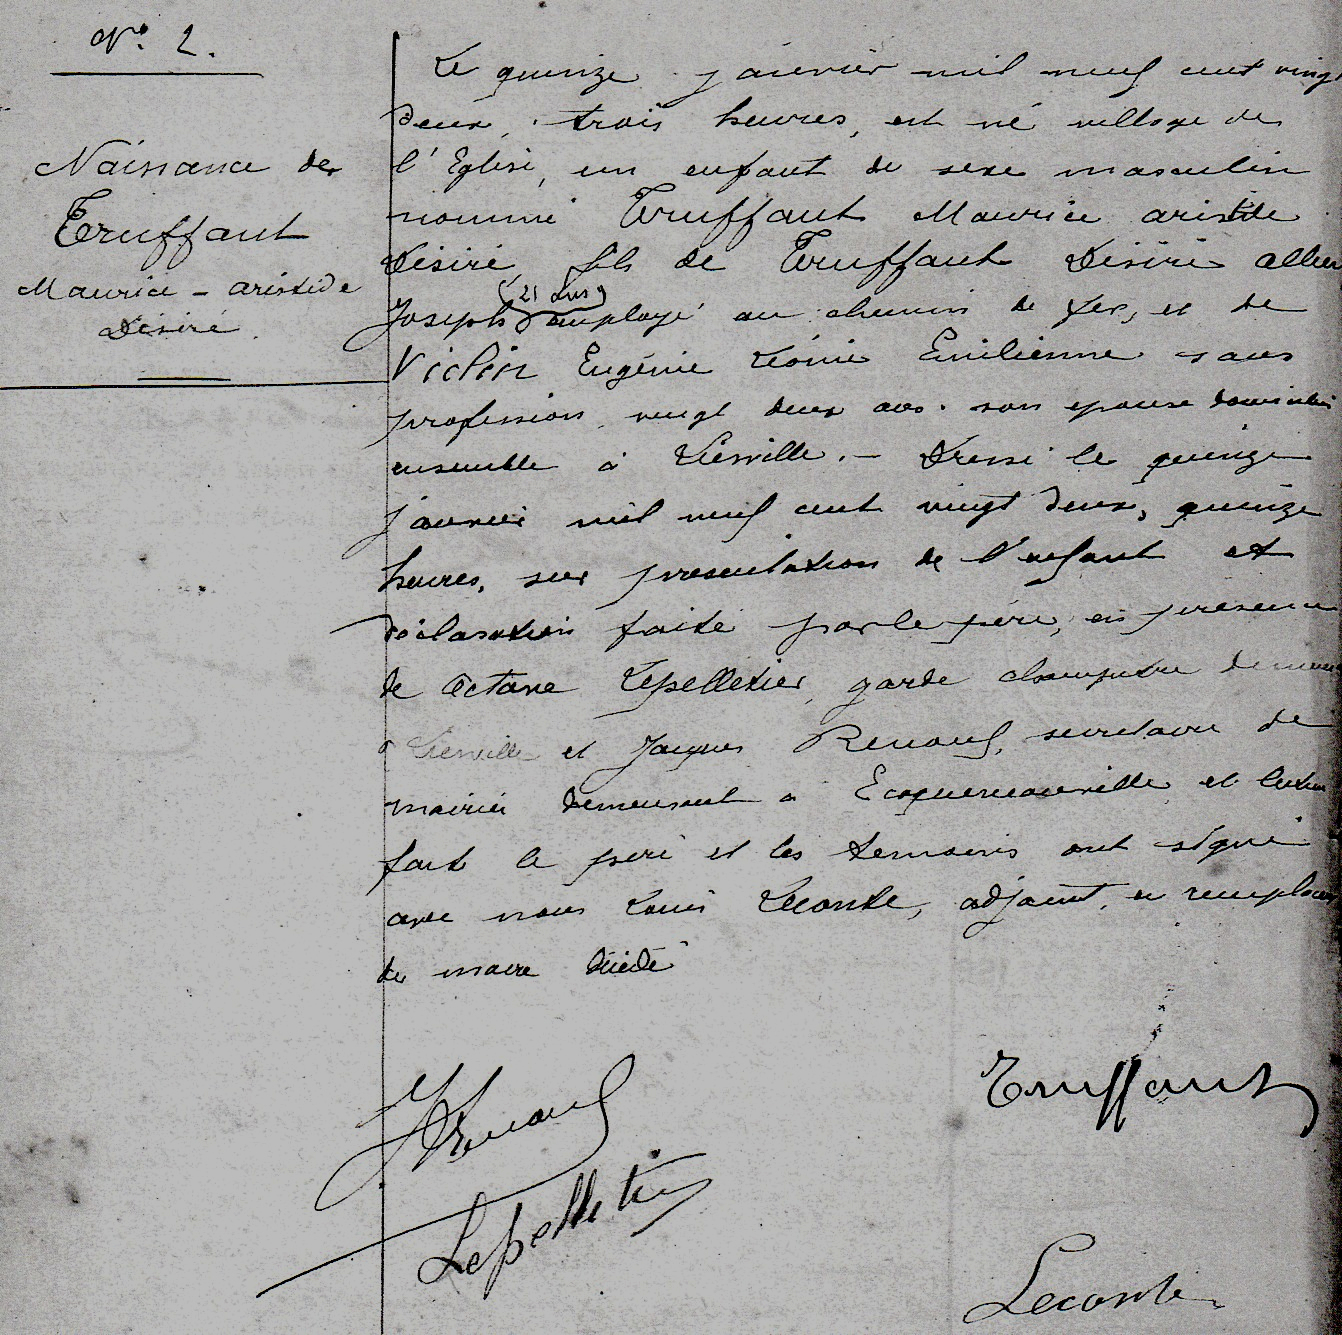 N° 2.
Naissance de
Truffaut
Maurice - aristide
Désiré
Le quinze janvier mil neuf cent vingt
deux, trois heures, est né village de
l'Eglise, un enfant de sexe masculin
nommé Truffaut Maurice aristide
Désiré, fils de Truffaut Désiré
(21 ans)
Joseph employé au chemin de fer, et de
Eugénie Léonie Emilienne sans
profession vingt deux ans. son epouse domiciliés
ensemble à Liesville. - Dressé le quinze
janvier mil neuf cent vingt deux, quinze
heures, sur presentation de l'enfant et
déclaration faite par le père, en présence
de Octave Lepelletier, garde champetre
à Liesville et Jacques Renouf, secretaire de
mairie demeurant a Ecoquenéauville et lecture
fait le père et les temoins ont signé
avec nous Louis Lecomte, adjoint, en remplacant
de maire décédé
JRenouf
Truffaut
Lepelletier
Lecomte